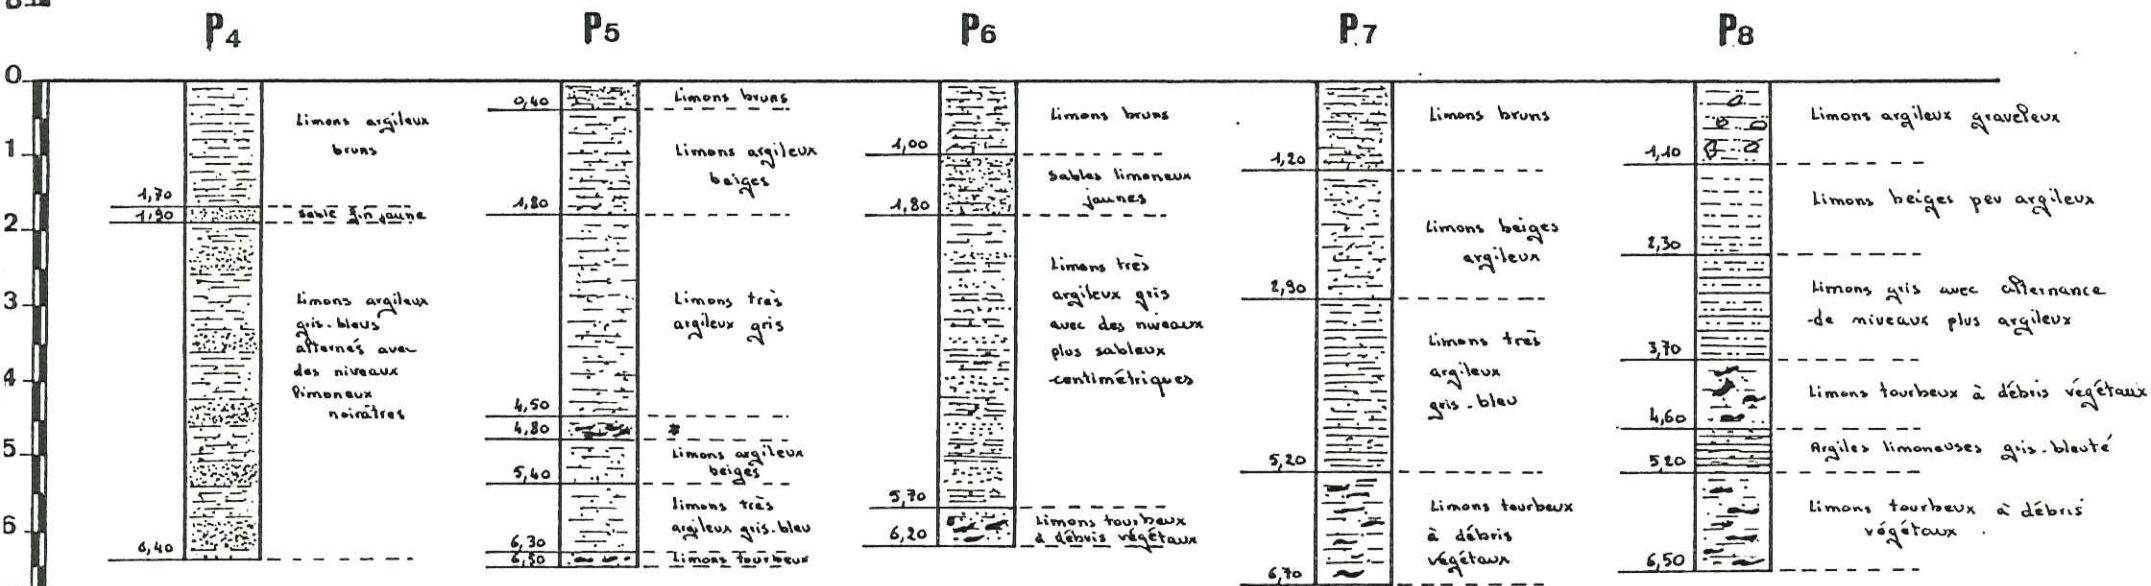 P4
P5
P6
P7
P8
0
1
2
3
4
5
6
1,70
1,90
6,40
Limons argileux
bruns
sable fin jaune
Limons argileux
gris-bleus
alternés avec
des niveaux
limoneux
noirâtres
0,40
1,80
4,50
4,80
5,40
6,30
6,50
Limons bruns
Limons argileux
beiges
Limons très
argileux gris
*
Limons argileux
beiges
Limons très
argileux gris-bleu
Limons tourbeux
1,00
1,80
5,70
6,20
Limons bruns
Sables limoneux
jaunes
Limons très
argileux gris
avec des niveaux
plus sableux
centimétriques
Limons tourbeux
à débris végétaux
1,20
2,90
5,20
6,70
Limons bruns
Limons beiges
argileux
Limons très
argileux
gris-bleu
Limons tourbeux
à débris
végétaux
1,10
2,30
3,70
4,60
5,20
6,50
Limons argileux graveleux
Limons beiges peu argileux
Limons gris avec alternance
de niveaux plus argileux
Limons tourbeux à débris végétaux
Argiles limoneuses gris-bleuté
Limons tourbeux à débris
végétaux